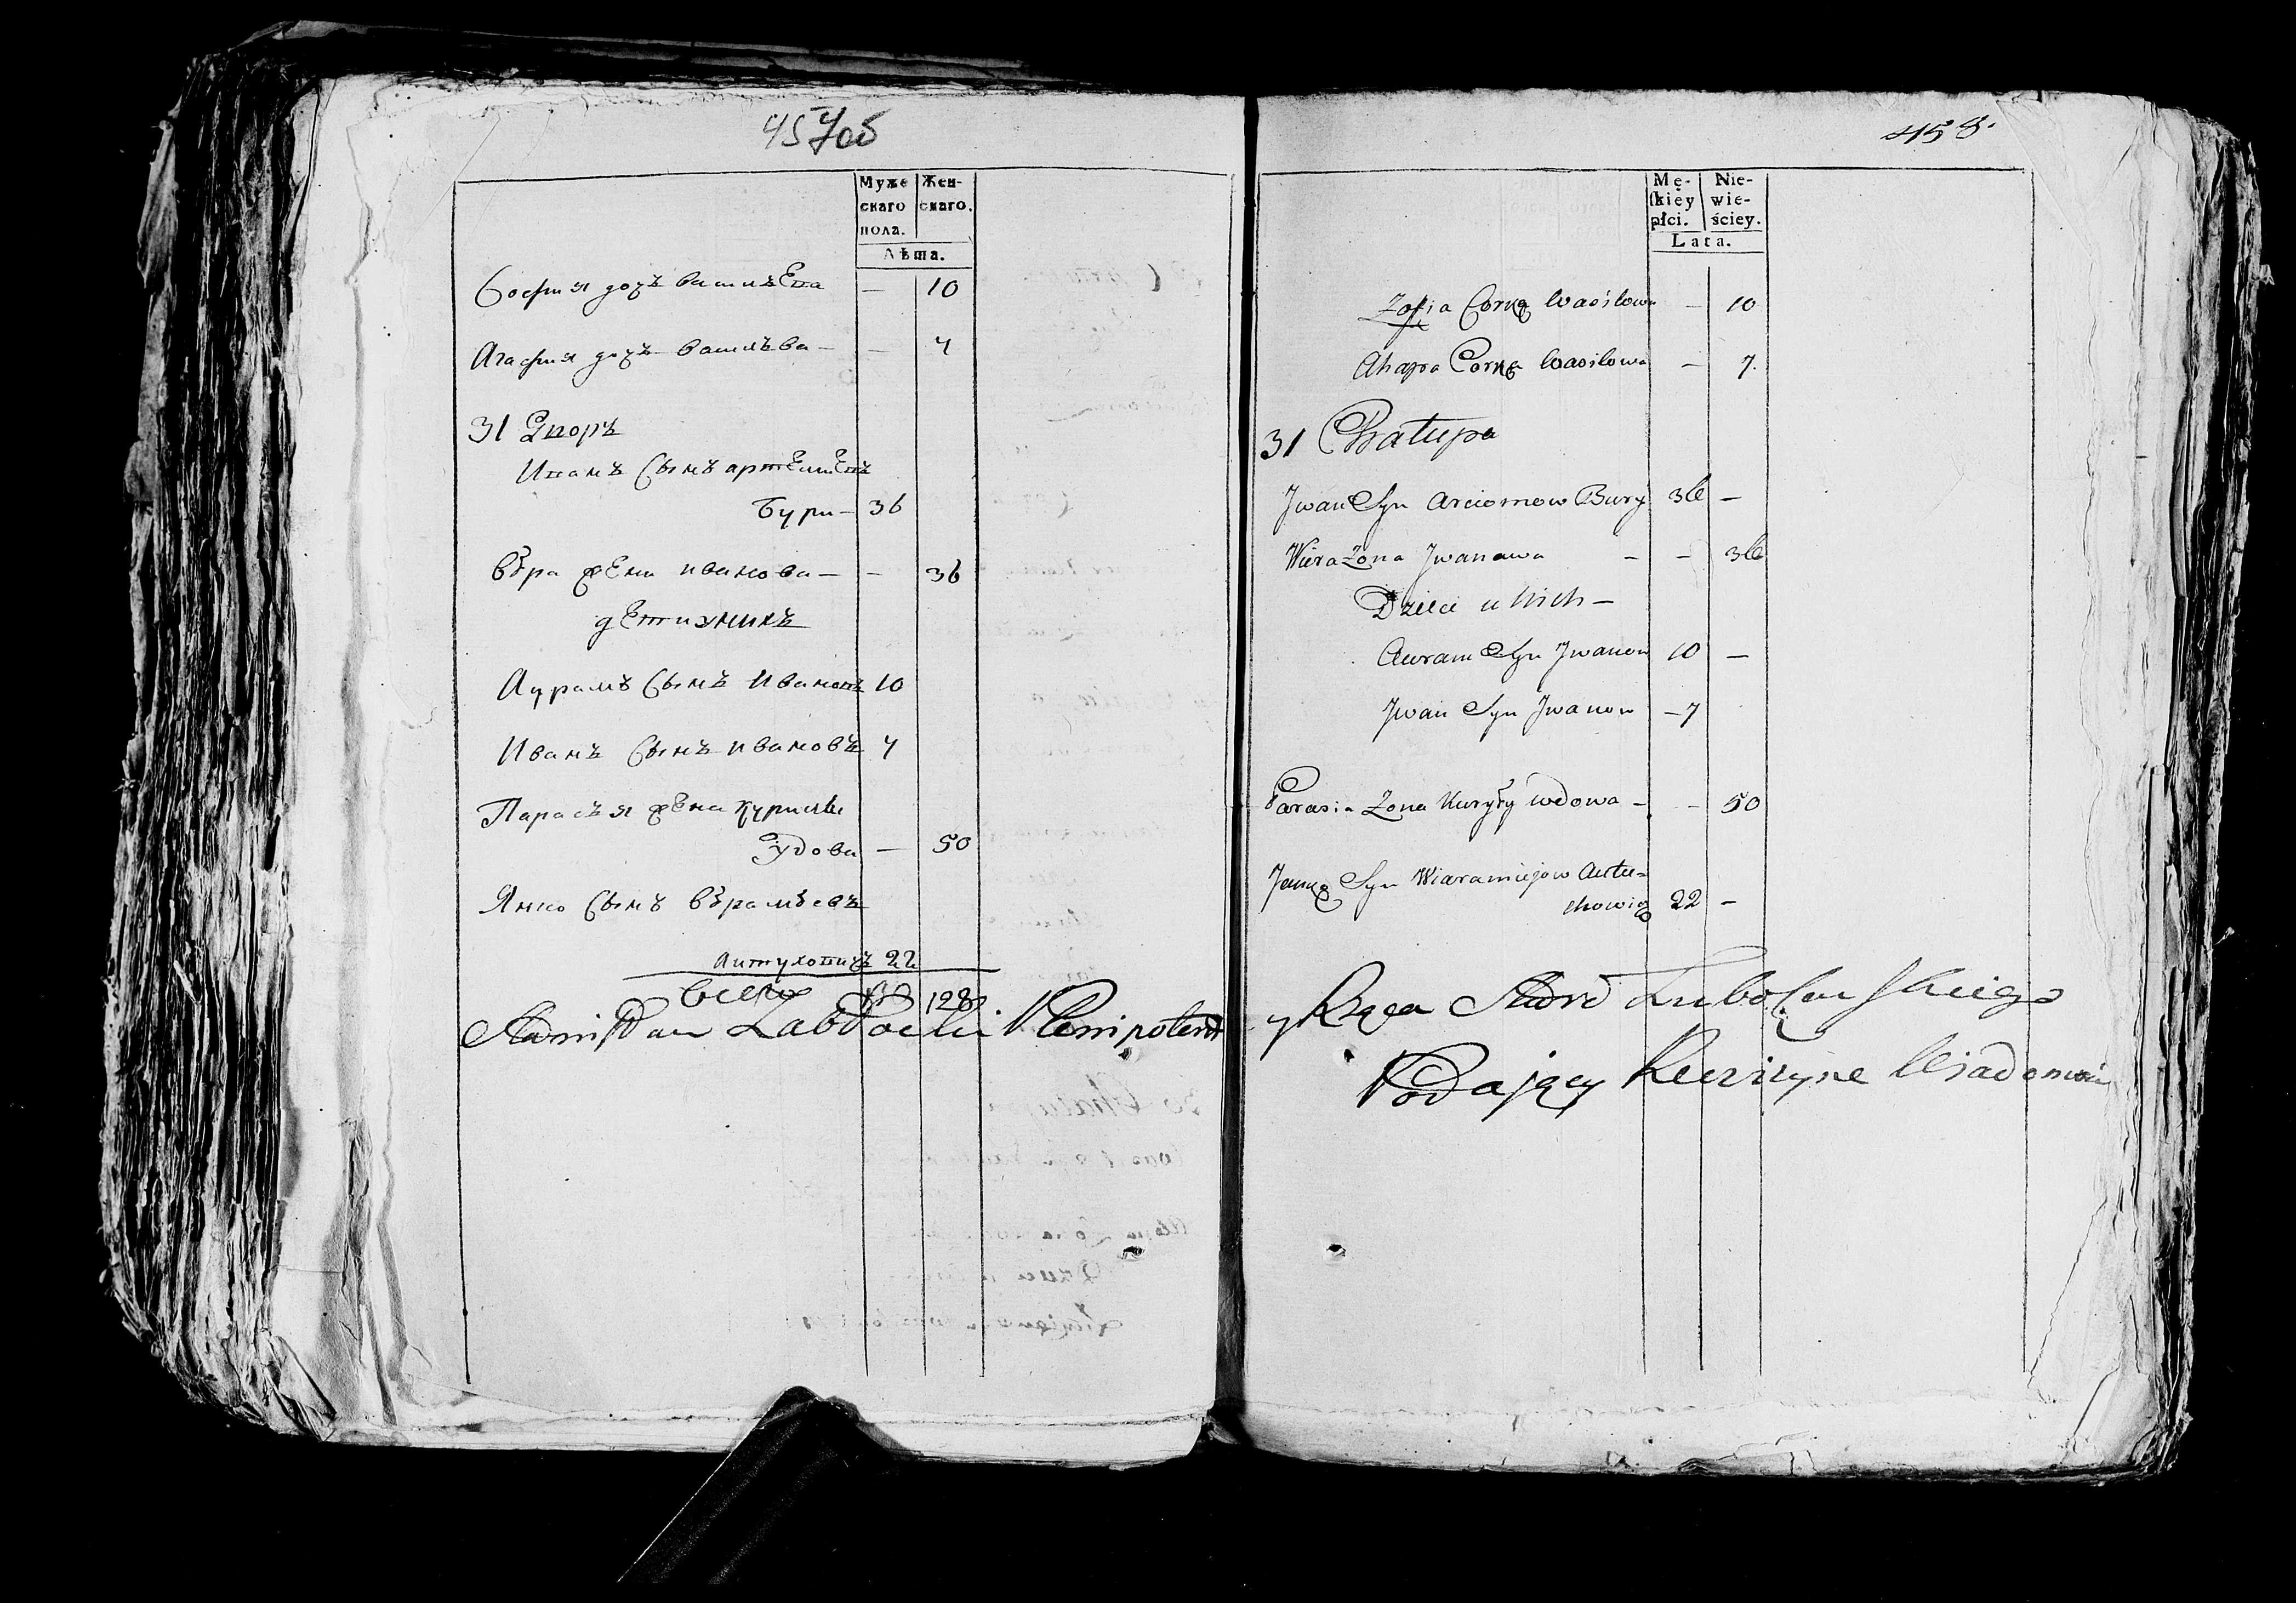 457об
Муже
скаго
пола.
Жен-
скаго.
Лѣта.
София дочъ васил​ѣва — 10
Агафия дочъ васил​ѣва — — 7
31 Дворъ
Иванъ Сынъ артемовъ
Бури — 36
Вѣра жена иванова — — 36
дети ихъ
Аурамъ Сынъ Ивановъ 10
Иванъ Сынъ ивановъ 7
Парасъя жена курилы
удова — 50
Янко Сынъ вѣрамѣевъ
Аутуховичъ 22
всего 128
Plenipotent
458.
Mę-
ſkiey
płci.
Nie-
wie-
ściey.
Lata.
Zofia Corka Wasilowa — 10
Ahapa Corka Wasilowa — 7.
31 Chatupa
Jwan Syn Arciomow Bury 36 —
Wiera Zona Jwanawa — — 36
Dzieci u Nich —
Auram Syn Jwanow 10 —
Jwan Syn Jwanow — 7
Parasia Zona Kuryły wdowa — — 50
Janka Syn Wiaramiejow Autu=
chowicz 22 —
y Rządca
Podający Rewizyine Wiadomości